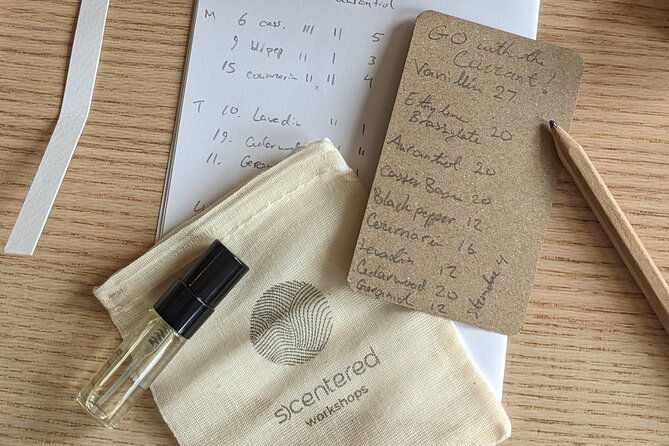 M 6 cass. 5
9 blk pep 1 3
15 coumarin 4
T 10. Lavadin 1
19. Cedarw
11. Geran
GO with the
Currant!
Vanillin 27
Ethylene
Brassylate 20
Aurantiol 20
Cassis Base 20
Black pepper 12
Coumarin 16
Lavadin 12
Cedarwood 20
Geraniol 12
s)centered
workshops